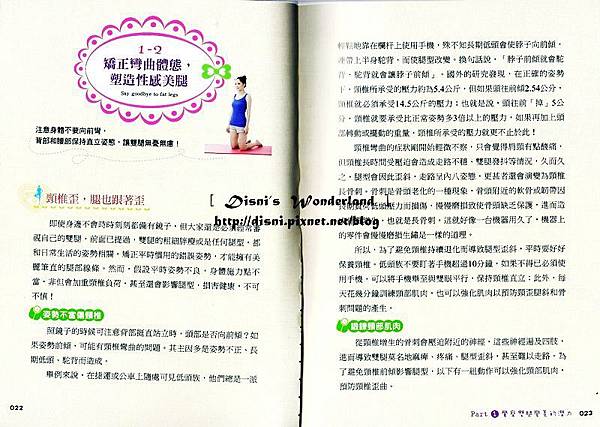 1-2
矯正彎曲體態，
塑造性感美腿
Say goodbye to fat legs
注意身體不要向前彎，
背部和腰部保持直立姿態，讓雙腿無憂無慮！
頸椎歪，腿也跟著歪
即使身邊不會時時刻刻都備有鏡子，但大家還是必須經常審
視自己的雙腿。前面已提過，雙腿的粗細胖瘦或是任何腿型，都
和日常生活的姿勢相關，矯正平時慣用的錯誤姿勢，才能擁有美
麗筆直的腿部線條。然而，假設平時姿勢不良，身體施力點不
當，非但會加重頸椎負荷，甚至還會影響腿型，損害健康，不可
不慎！
姿勢不當傷頸椎
照鏡子的時候可注意背部挺直站立時，頭部是否向前傾？如
果姿勢前傾，可能有頸椎彎曲的問題。其主因多是姿勢不正、長
期低頭、駝背而造成。
舉例來說，在捷運或公車上隨處可見低頭族，他們總是一派
022
輕鬆地靠在欄杆上使用手機，殊不知長期低頭會使脖子向前傾，
連帶上半身駝背，而使腿型改變。換句話說，「脖子前傾就會駝
背，駝背就會讓脖子前傾」。國外的研究發現，在正確的姿勢
下，頸椎所承受的壓力約為5.4公斤，但如果頭往前傾2.54公分，
頸椎就必須承受14.5公斤的壓力；也就是說，頭往前「掉」5公
分，頸椎就要承受比正常姿勢多3倍以上的壓力，如果再加上頭
部轉動或擺動的重量，頸椎所承受的壓力就更不止於此！
頸椎彎曲的症狀剛開始輕微不察，只會覺得肩頸有點僵痛，
但頸椎長時間受壓迫會造成走路不穩、雙腿發抖等情況，久而久
之，腿型會因此歪斜，走路呈內八姿態，更甚者還會演變為頸椎
長骨刺。骨刺是骨頭老化的一種現象，骨頭附近的軟骨或韌帶因
長期負荷低頭壓力而損傷，慢慢磨損致使骨頭缺乏保護，進而造
也就是長骨刺，這就好像一台機器用久了，機器上
的零件會慢慢磨損生鏽是一樣的道理。
所以，為了避免頸椎持續退化而導致腿型歪斜，平時要好好
保養頸椎。低頭族不要盯著手機超過10分鐘，如果不得已必須使
用手機，可以將手機舉至與雙眼平行，保持頸椎直立；此外，每
天花幾分鐘訓練頸部肌肉，也可以強化肌肉以預防頸歪腿斜和骨
刺問題的產生。
鍛鍊頸部肌肉
從頸椎增生的骨刺會壓迫附近的神經，這些神經遍及四肢，
進而導致雙腿莫名地麻痺、疼痛、腿型歪斜，甚至難以走路。為
了避免頸椎前傾影響腿型，以下有一組動作可以強化頸部肌肉，
預防頸椎歪曲。
Part 1
023
[ Disni's Wonderland ]
http://disni.pixnet.net/blog